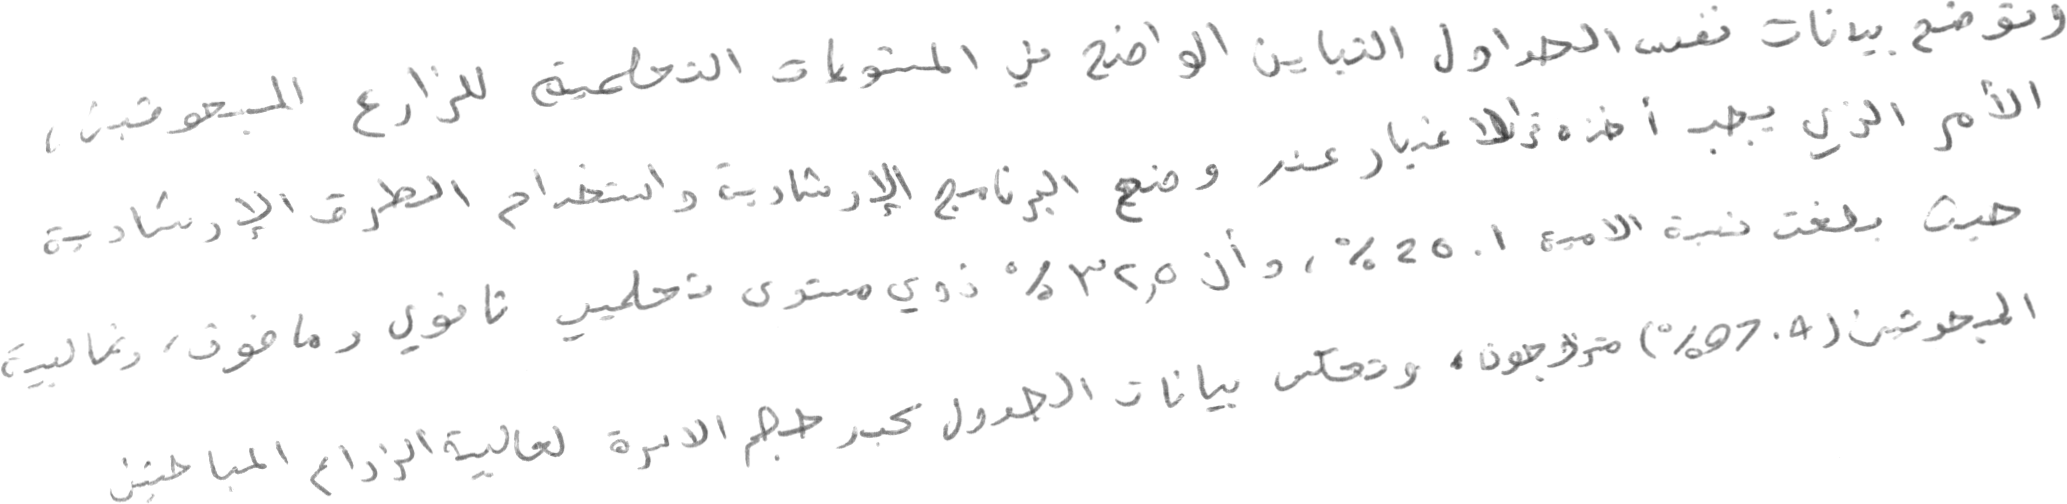 وتوضح بيانات نفس الجداول التباين الواضح في المستويات التعليمية للزارع المبحوثين،
الأمر الذي يجب أخذه الاعتبار عند وضع البرنامج الإرشادية واستخدام الطرق الإرشادية
حيث بلغت نسبة الامية 20.1 %، وأن ٣٢,٥ % ذوي مستوى تعليمي ثانوي وما فوق، وغالبية
المبحوثين (97.4%) متزوجون، وتعكس بيانات الجدول كبر حجم الاسرة لغالبية الزراع المباحثين